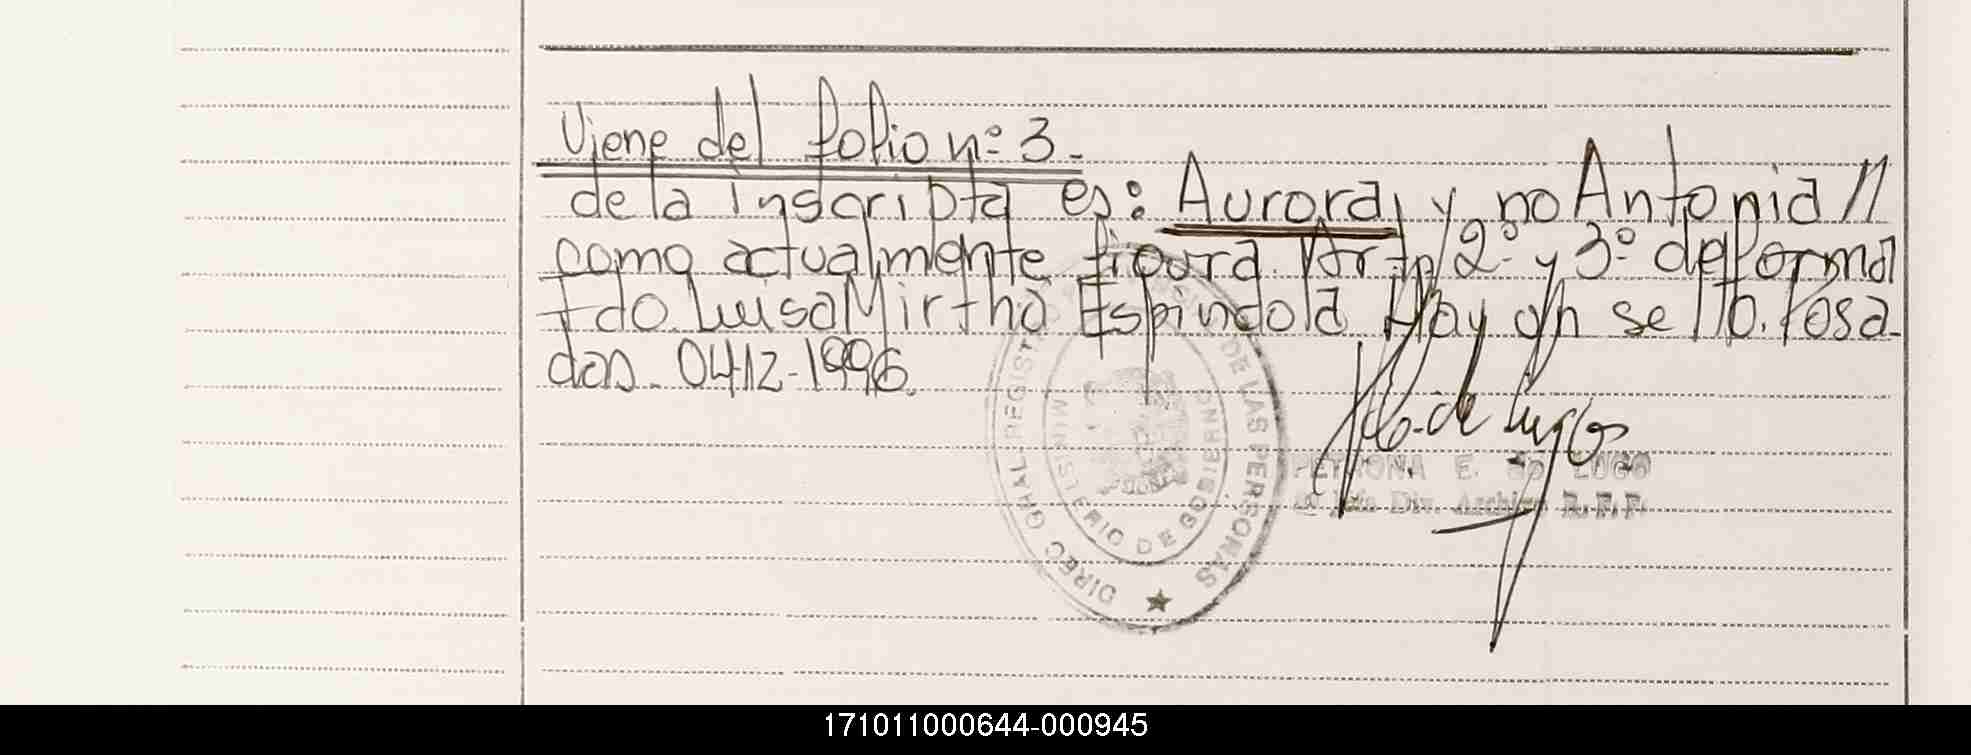 Viene del folio nº 3-
de la inscripta es: Aurora, y no Antonia //
como actualmente figura. Art. 2º y 3º de forma
Fdo. Luisa Mirtha Espindola Hay un sello. Posa-
das. 04-12-1996.
DIREC GRAL-REGISTRO DE LAS PERSONAS
MINISTERIO DE GOBIERNO
PETRONA E. de LUGO
Jefe Div. Archivo R.P.P.
171011000644-000945